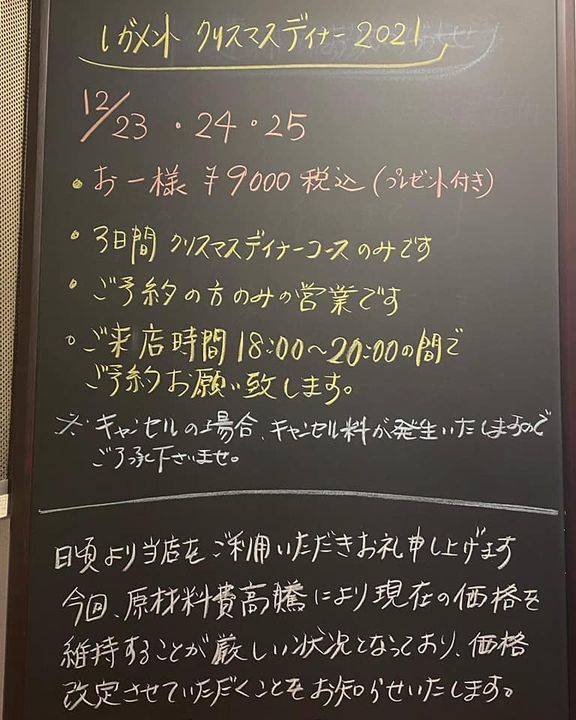 レガメント クリスマスディナー 2021
12/23・24・25
・お一様 ¥9000 税込 (プレゼント付き)
・3日間 クリスマスディナーコースのみです
・ご予約の方のみの営業です
・ご来店時間 18:00〜20:00の間で
ご予約お願い致します。
※ キャンセルの場合、キャンセル料が発生いたしますので
ご了承下さいませ。
日頃より当店をご利用いただきお礼申し上げます
今回、原材料費高騰により現在の価格を
維持することが厳しい状況となっており、価格
改定させていただくことをお知らせいたします。